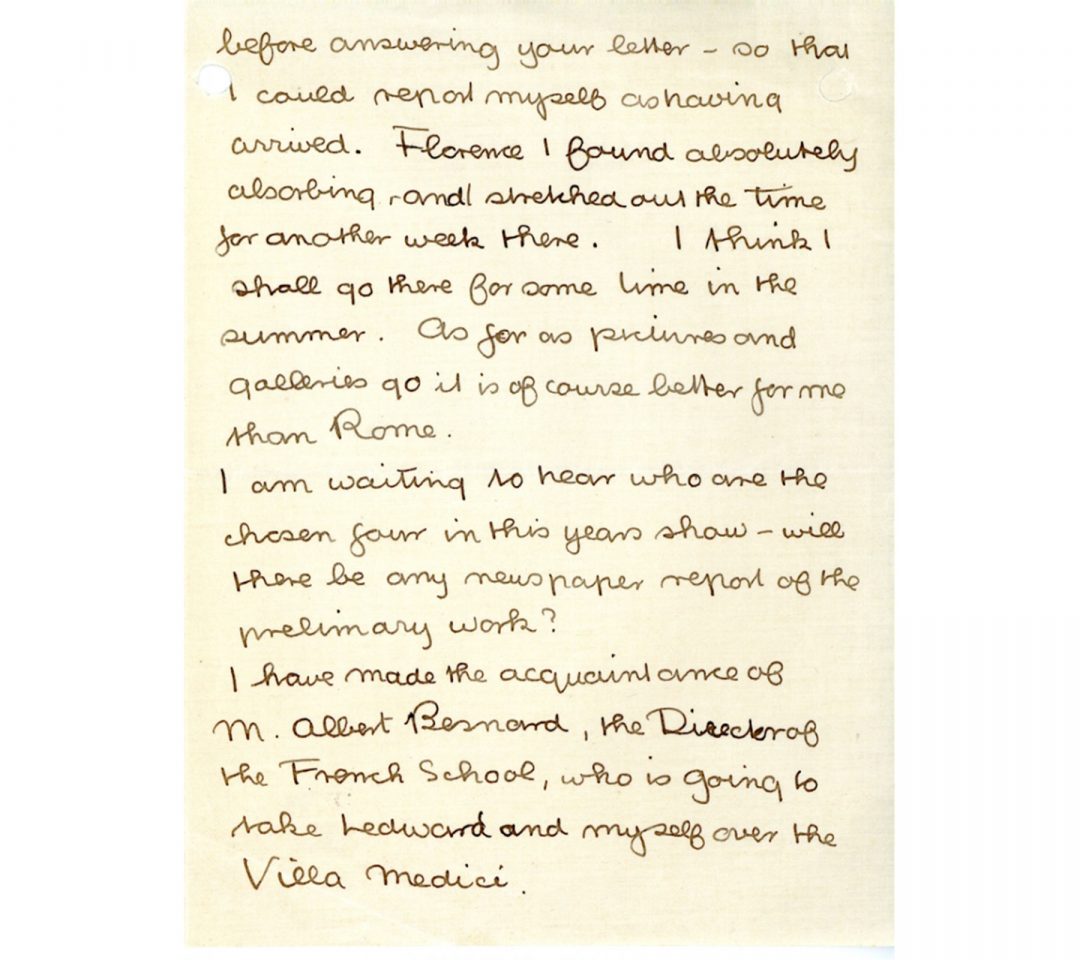 before answering your letter – so that
I could report myself as having
arrived. Florence I found absolutely
absorbing, and stretched out the time
for another week there. I think I
shall go there for some time in the
summer. As far as pictures and
galleries go it is of course better for me
than Rome.
I am waiting to hear who are the
chosen four in this years show – will
there be any newspaper report of the
prelimary work?
I have made the acquaintance of
M. Albert Besnard, the Director of
the French School, who is going to
take Ledward and myself over the
Villa Medici.